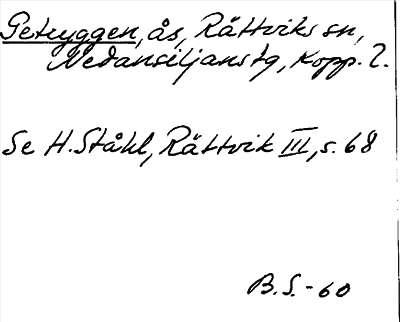 Getryggen, ås, Rättviks sn,
Nedansiljans tg, Kopp. l.
Se H. Ståhl, Rättvik III, s. 68
B.S. - 60